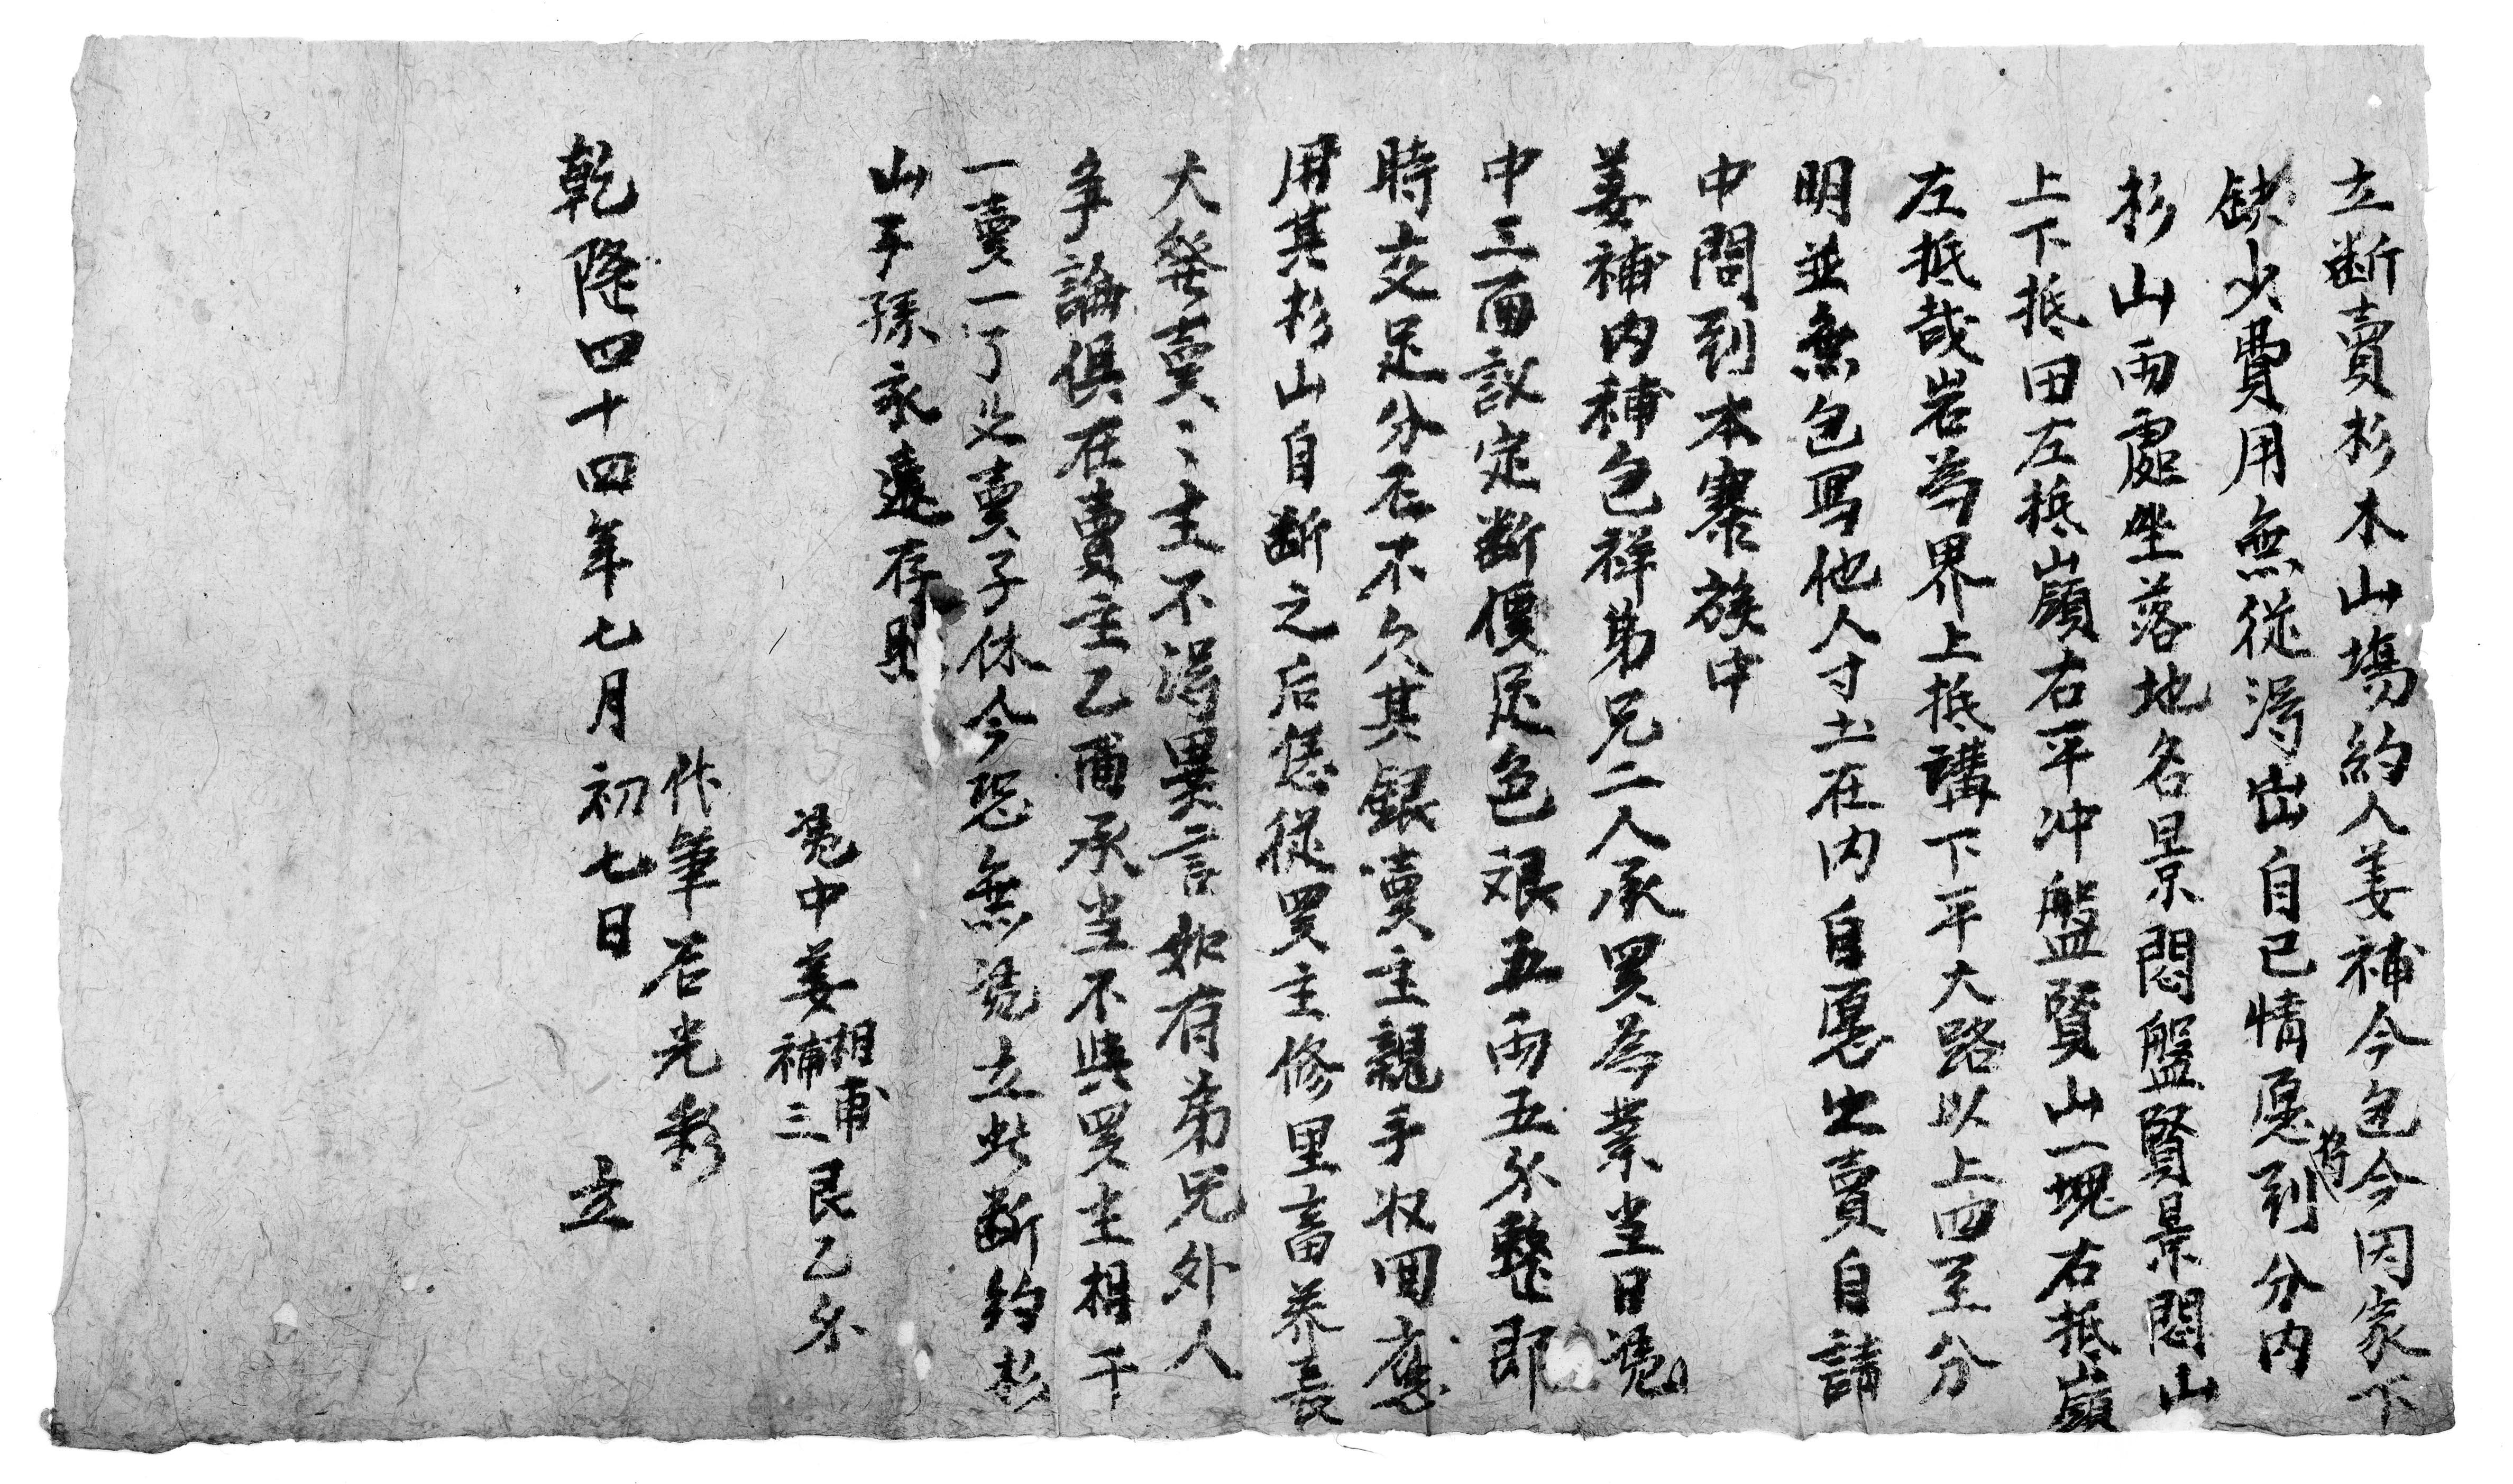 立断賣杉木山塲約人姜補今包今因家下
缺少費用無從淂出自己情愿将到分内
杉山兩處坐落地名景悶盤賢景悶山
上下抵田左抵山嶺右平冲盤賢山一塊右抵嶺
左抵哉岩為界上抵講下平大路以上四至分
明並無包写他人寸土在内自愿出賣自請
中問到本寨族中
姜補内補包祥弟兄二人承買為業当日凴
中三面議定断價足色艰五兩五分整即
時交足分厘不欠其銀賣主親手收回應
用其杉山自断之后恁從買主修里畜养長
大發賣〻主不淂異言如有弟兄外人
争論俱在賣主乙面承当不與買主相干
一賣一了父賣子休今恐無凴立此断約杉
山子孫永遠存照
凴中姜相甫補三艮乙分
代筆石光彩
乾隆四十四年七月初七日 立